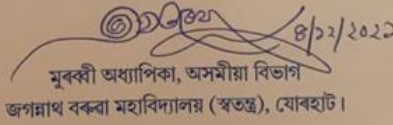 ৪/১২/২০২১
মুৰব্বী অধ্যাপিকা, অসমীয়া বিভাগ
জগন্নাথ বৰুৱা মহাবিদ্যালয় (স্বতন্ত্ৰ), যোৰহাট।